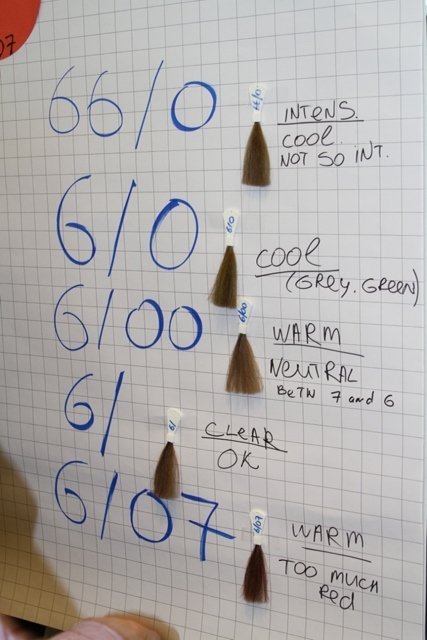 07
66/0
66/0
INTENS.
COOL.
NOT SO INT.
6/0
6/0
COOL
(GREY. GREEN)
6/00
6/00
WARM
NEUTRAL
BETN 7 and 6
6/
6/
CLEAR
OK
6/07
6/07
WARM
TOO MUCH
Red